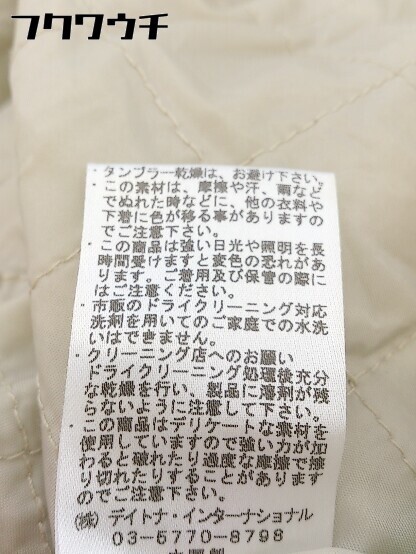 フクワウチ
・タンブラー乾燥は、お避け下さい。
・この素材は、摩擦や汗、雨など
でぬれた時などに、他の衣料や
下着に色が移る事がありますの
でご注意下さい。
・この商品は強い日光や照明を長
時間受けますと変色の恐れがあ
ります。ご着用及び保管の際に
はご注意ください。
・市販のドライクリーニング対応
洗剤を用いてのご家庭での水洗
いはできません。
・クリーニング店へのお願い
ドライクリーニング処理後充分
な乾燥を行い、製品に溶剤が残
らないように注意して下さい。
・この商品はデリケートな素材を
使用していますので強い力が加
わると破れたり過度な摩擦で擦
り切れたりすることがあります
のでご注意下さい。
(株) デイトナ・インターナショナル
03-5770-8798